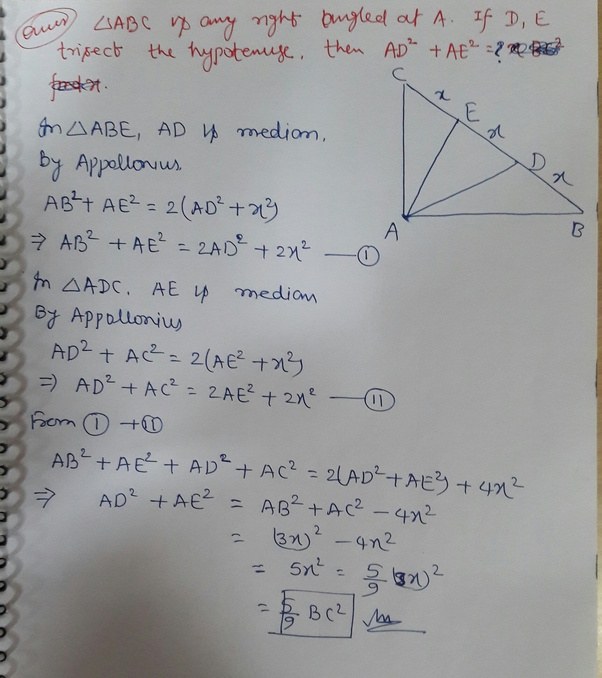 Ques △ABC is any right angled at A. If D, E
trisect the hypotenuse, then AD² + AE² = ?
C
x
E
x
D
x
A
B
In △ABE, AD is median.
By Appollonius.
AB² + AE² = 2(AD² + x²)
⇒ AB² + AE² = 2AD² + 2x² — I
In △ADC. AE is median
By Appollonius
AD² + AC² = 2(AE² + x²)
⇒ AD² + AC² = 2AE² + 2x² — II
From I + II
AB² + AE² + AD² + AC² = 2(AD² + AE²) + 4x²
⇒ AD² + AE² = AB² + AC² - 4x²
= (3x)² - 4x²
= 5x² = 5/9 (3x)²
= 5/9 BC²